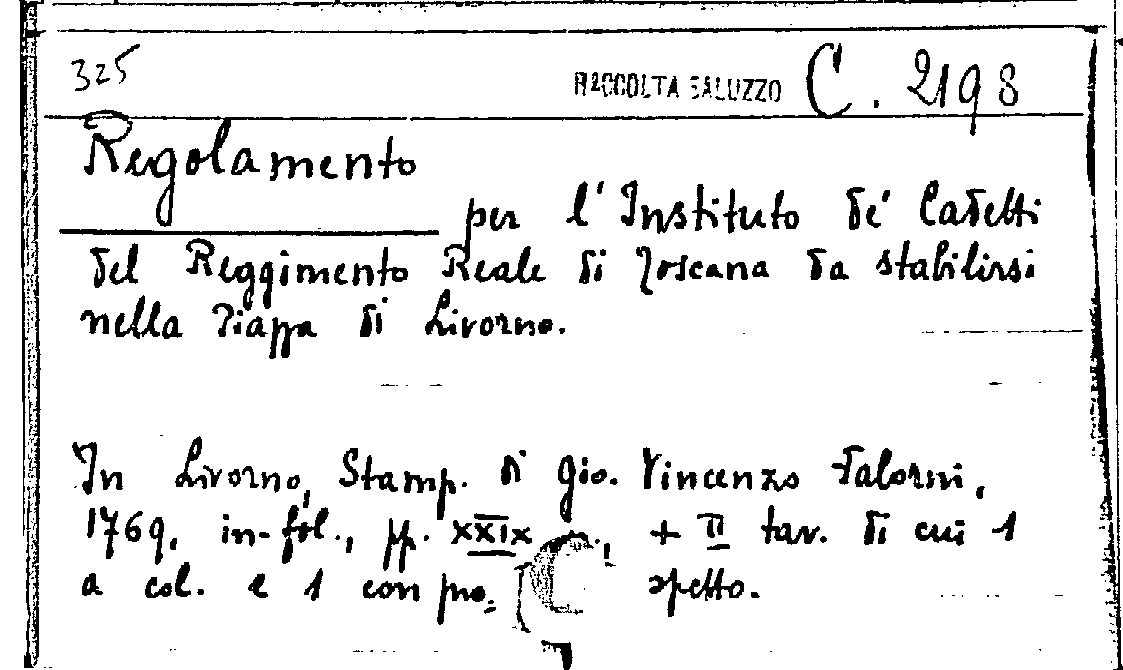 325
RACCOLTA SALUZZO C. 2198
Regolamento
per l'Instituto de' Cadetti
del Reggimento Reale di Toscana da stabilirsi
nella Piazza di Livorno.
In Livorno, Stamp. di Gio. Vincenzo Falorni,
1769, in-fol., pp. XXIX + II tav. di cui 1
a col. e 1 con pro= spetto.